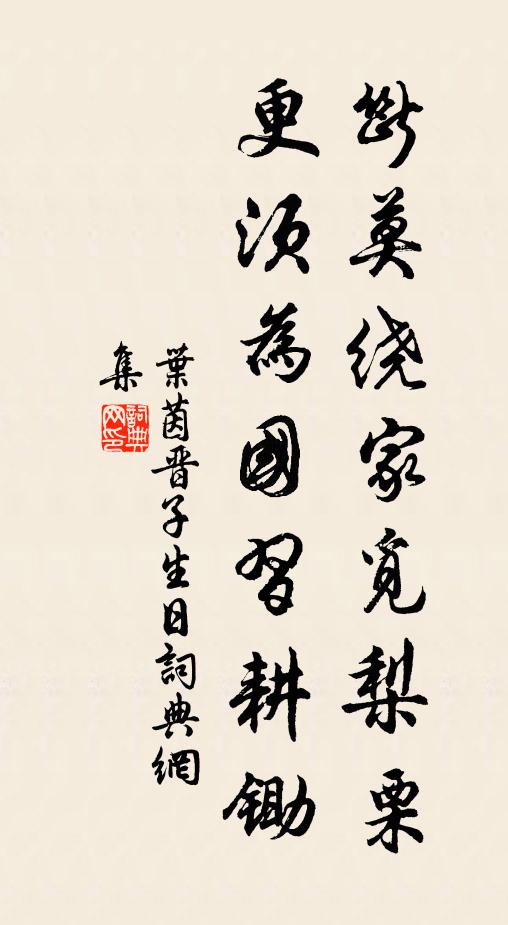 斷莫绕家覓梨栗
更須為國習耕鋤
葉茵晋子生日詞典網
集
詞典网印